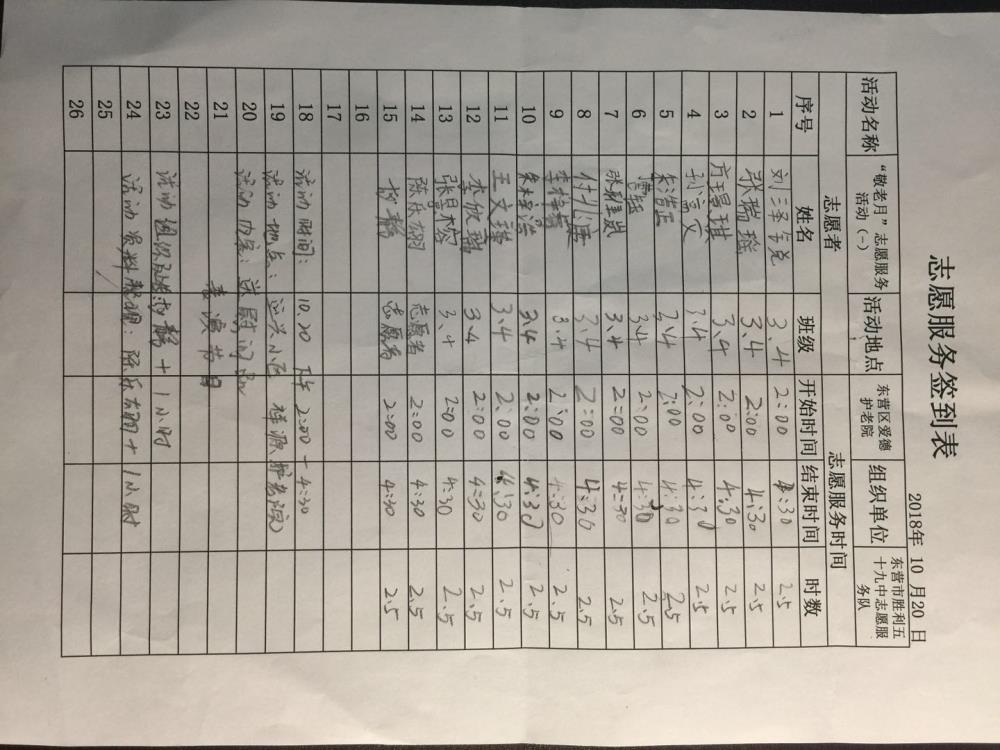 志愿服务签到表
2018年 10 月20 日
活动名称 “敬老月”志愿服务活动（一） 活动地点 东营区爱德护老院 组织单位 东营市胜利五十九中志愿服务队
志愿者 志愿服务时间
序号 姓名 班级 开始时间 结束时间 时数
1 刘泽 3.4 2:00 4:30 2.5
2 张瑞瑶 3.4 2:00 4:30 2.5
3 琪 3.4 2:00 4:30 2.5
4 3.4 2:00 4:30 2.5
5 3.4 2:00 4:30 2.5
6 3.4 2:00 4:30 2.5
7 张 岚 3.4 2:00 4:30 2.5
8 付 3.4 2:00 4:30 2.5
9 李 3.4 2:00 4:30 2.5
10 朱 浩 3.4 2:00 4:30 2.5
11 王文 3.4 2:00 4:30 2.5
12 李欣瑞 3.4 2:00 4:30 2.5
13 张 容 3.4 2:00 4:30 2.5
14 陈乐翔 志愿者 2:00 4:30 2.5
15 静 志愿者 2:00 4:30 2.5
16
17
18 活动时间：10.20 下午 2:00-4:30
19 活动地点：运兴小区 祥源护老院
20 活动内容：送慰问品
21 表演节目
22
23 活动组织 静+1小时
24 活动资料整理：陈乐翔+1小时
25
26